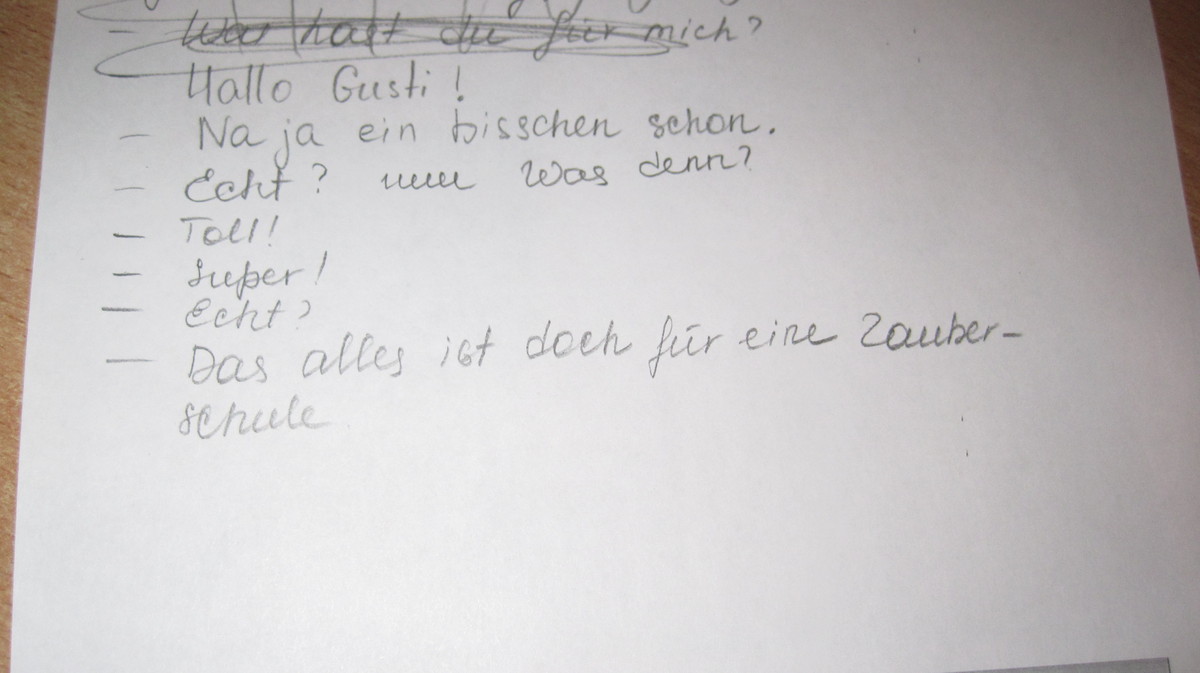 - Was hast du für mich?
Hallo Gusti!
- Na ja ein bisschen schon.
- Echt? Was denn?
- Toll!
- Super!
- Echt?
- Das alles ist doch für eine Zauber-
schule